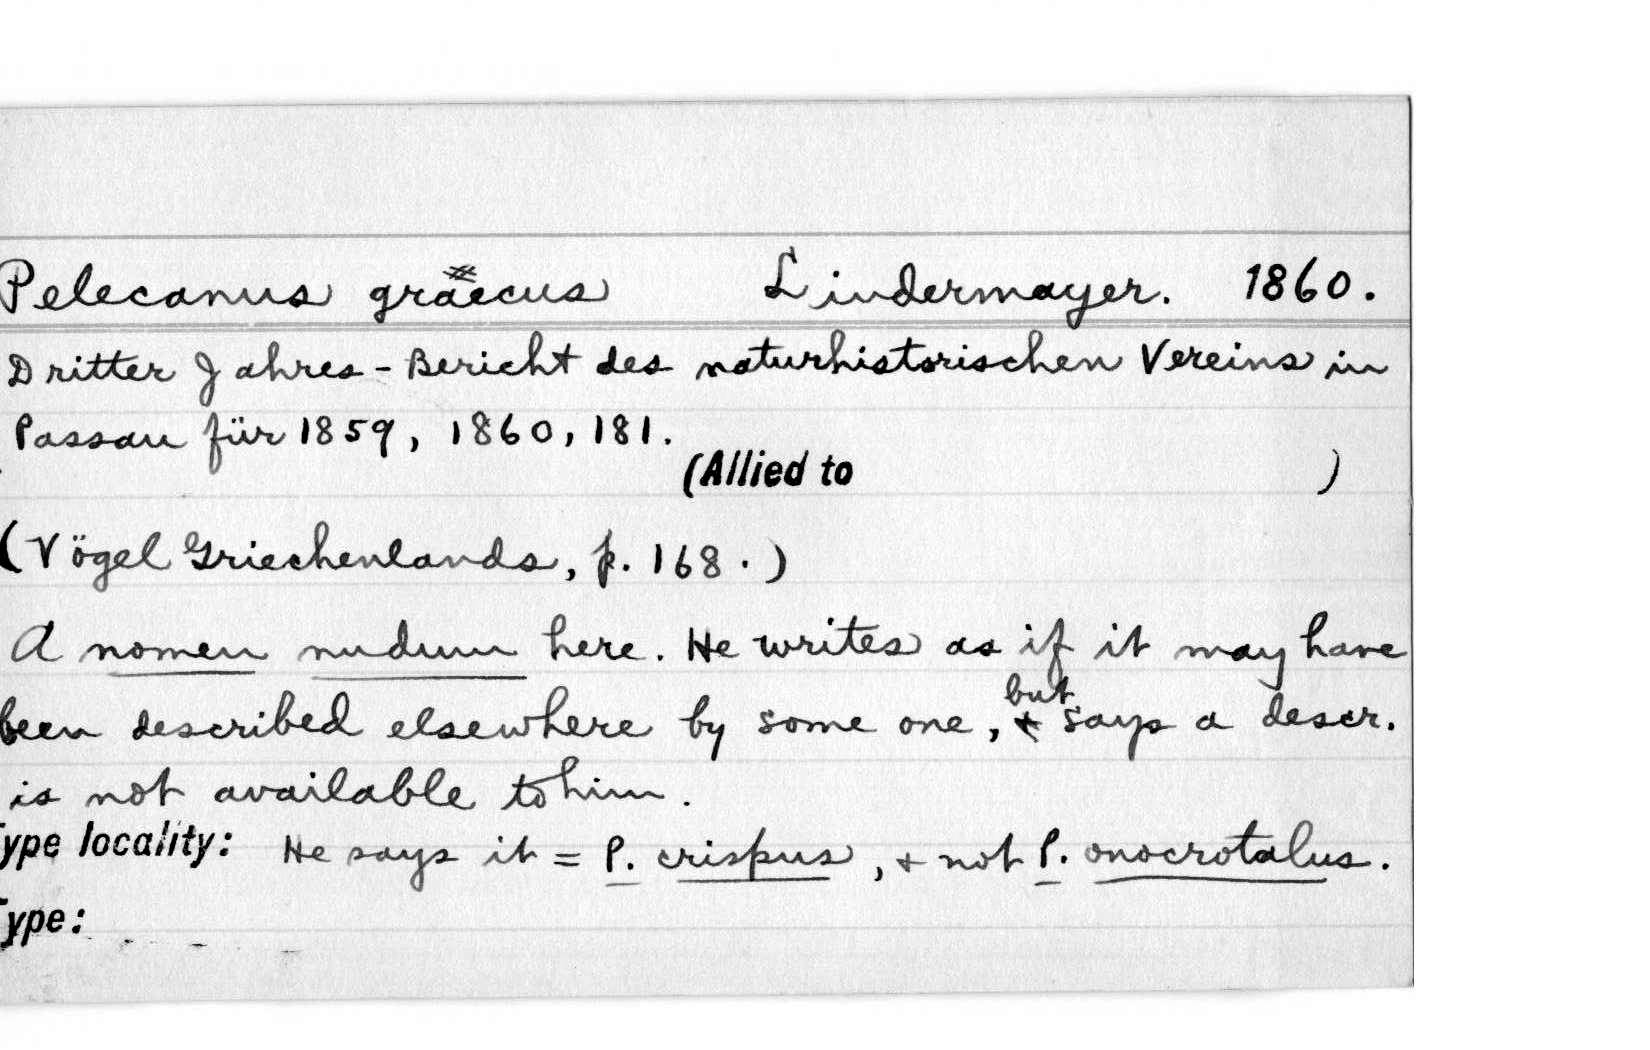 Pelecanus graecus Lindermayer. 1860.
Dritter Jahres-Bericht des naturhistorischen Vereins in
Passau für 1859, 1860, 181.
(Allied to )
(Vögel Griechenlands, p. 168.)
A nomen nudum here. He writes as if it may have
been described elsewhere by some one, but says a descr.
is not available to him.
ype locality: He says it = P. crispus, & not P. onocrotalus.
ype: